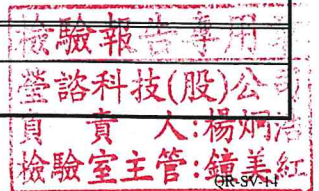 檢驗報告專用章
瑩諮科技(股)公司
負責人:楊炯浩
檢驗室主管:鐘美紅
QR-SV-11